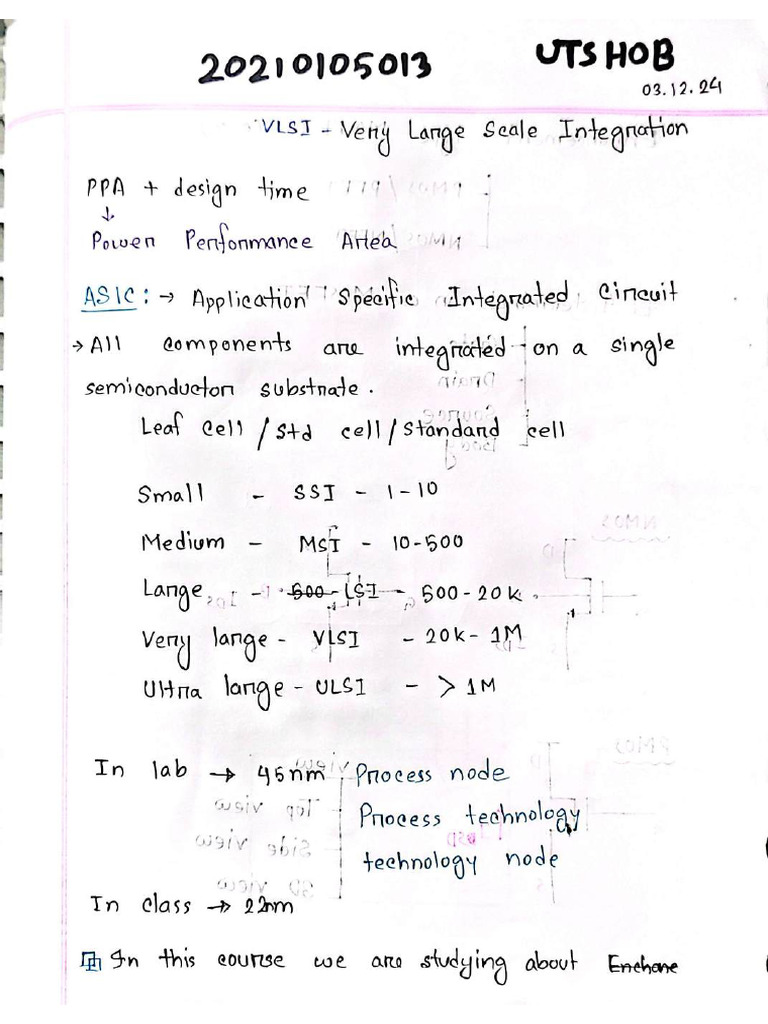 20210105013 UTSHOB
03.12.24
VLSI - Very Large Scale Integration
PPA + design time
↓
Power Performance Area
ASIC : → Application Specific Integrated Circuit
→ All components are integrated on a single
semiconductor substrate.
Leaf cell / Std cell / Standard cell
Small - SSI - 1-10
Medium - MSI - 10-500
Large - 500 - LSI - 500-20K.
Very large - VLSI - 20K-1M
Ultra large - ULSI - > 1M
In lab → 45nm Process node
Process technology
technology node
In class → 22nm
In this course we are studying about Enchane